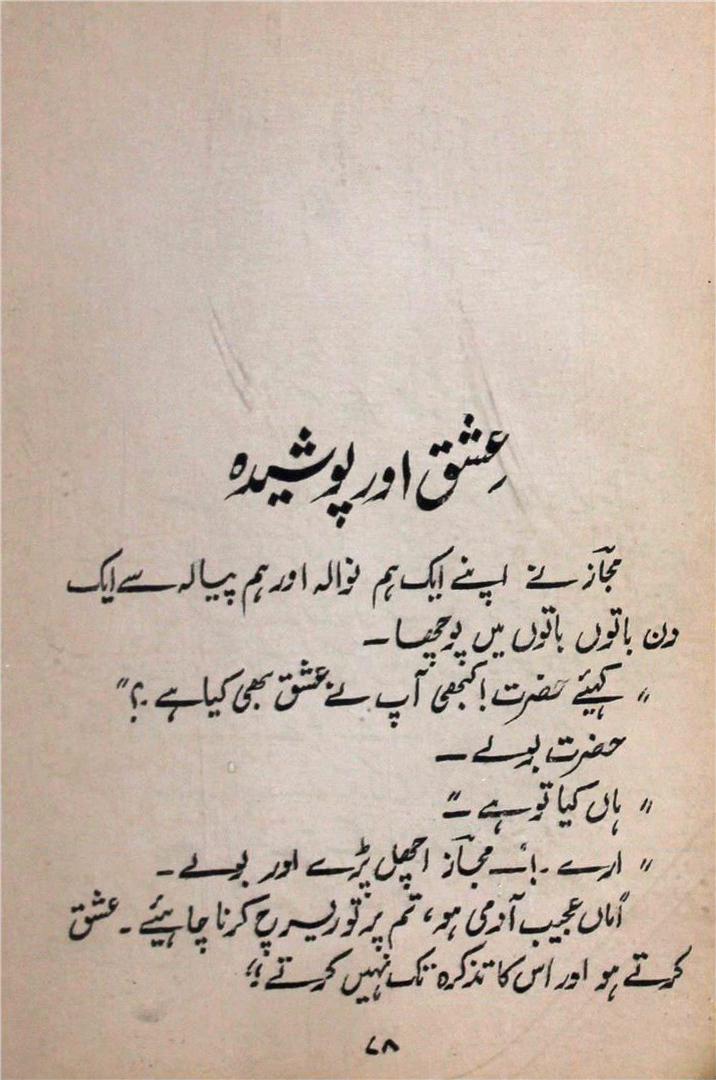 عِشق اور پوشیدہ
مجازؔ نے اپنے ایک ہم نوالہ اور ہم پیالہ سے ایک
دن باتوں باتوں میں پوچھا۔
"کہیئے حضرت! کبھی آپ نے عشق بھی کیا ہے۔؟"
حضرت بولے۔
"ہاں کیا تو ہے۔"
"ارے۔!" مجازؔ اچھل پڑے اور بولے۔
"اماں عجیب آدمی ہو، تم پر تو ریسرچ کرنا چاہیئے۔ عشق
کرتے ہو اور اس کا تذکرہ تک نہیں کرتے؟"
۷۸